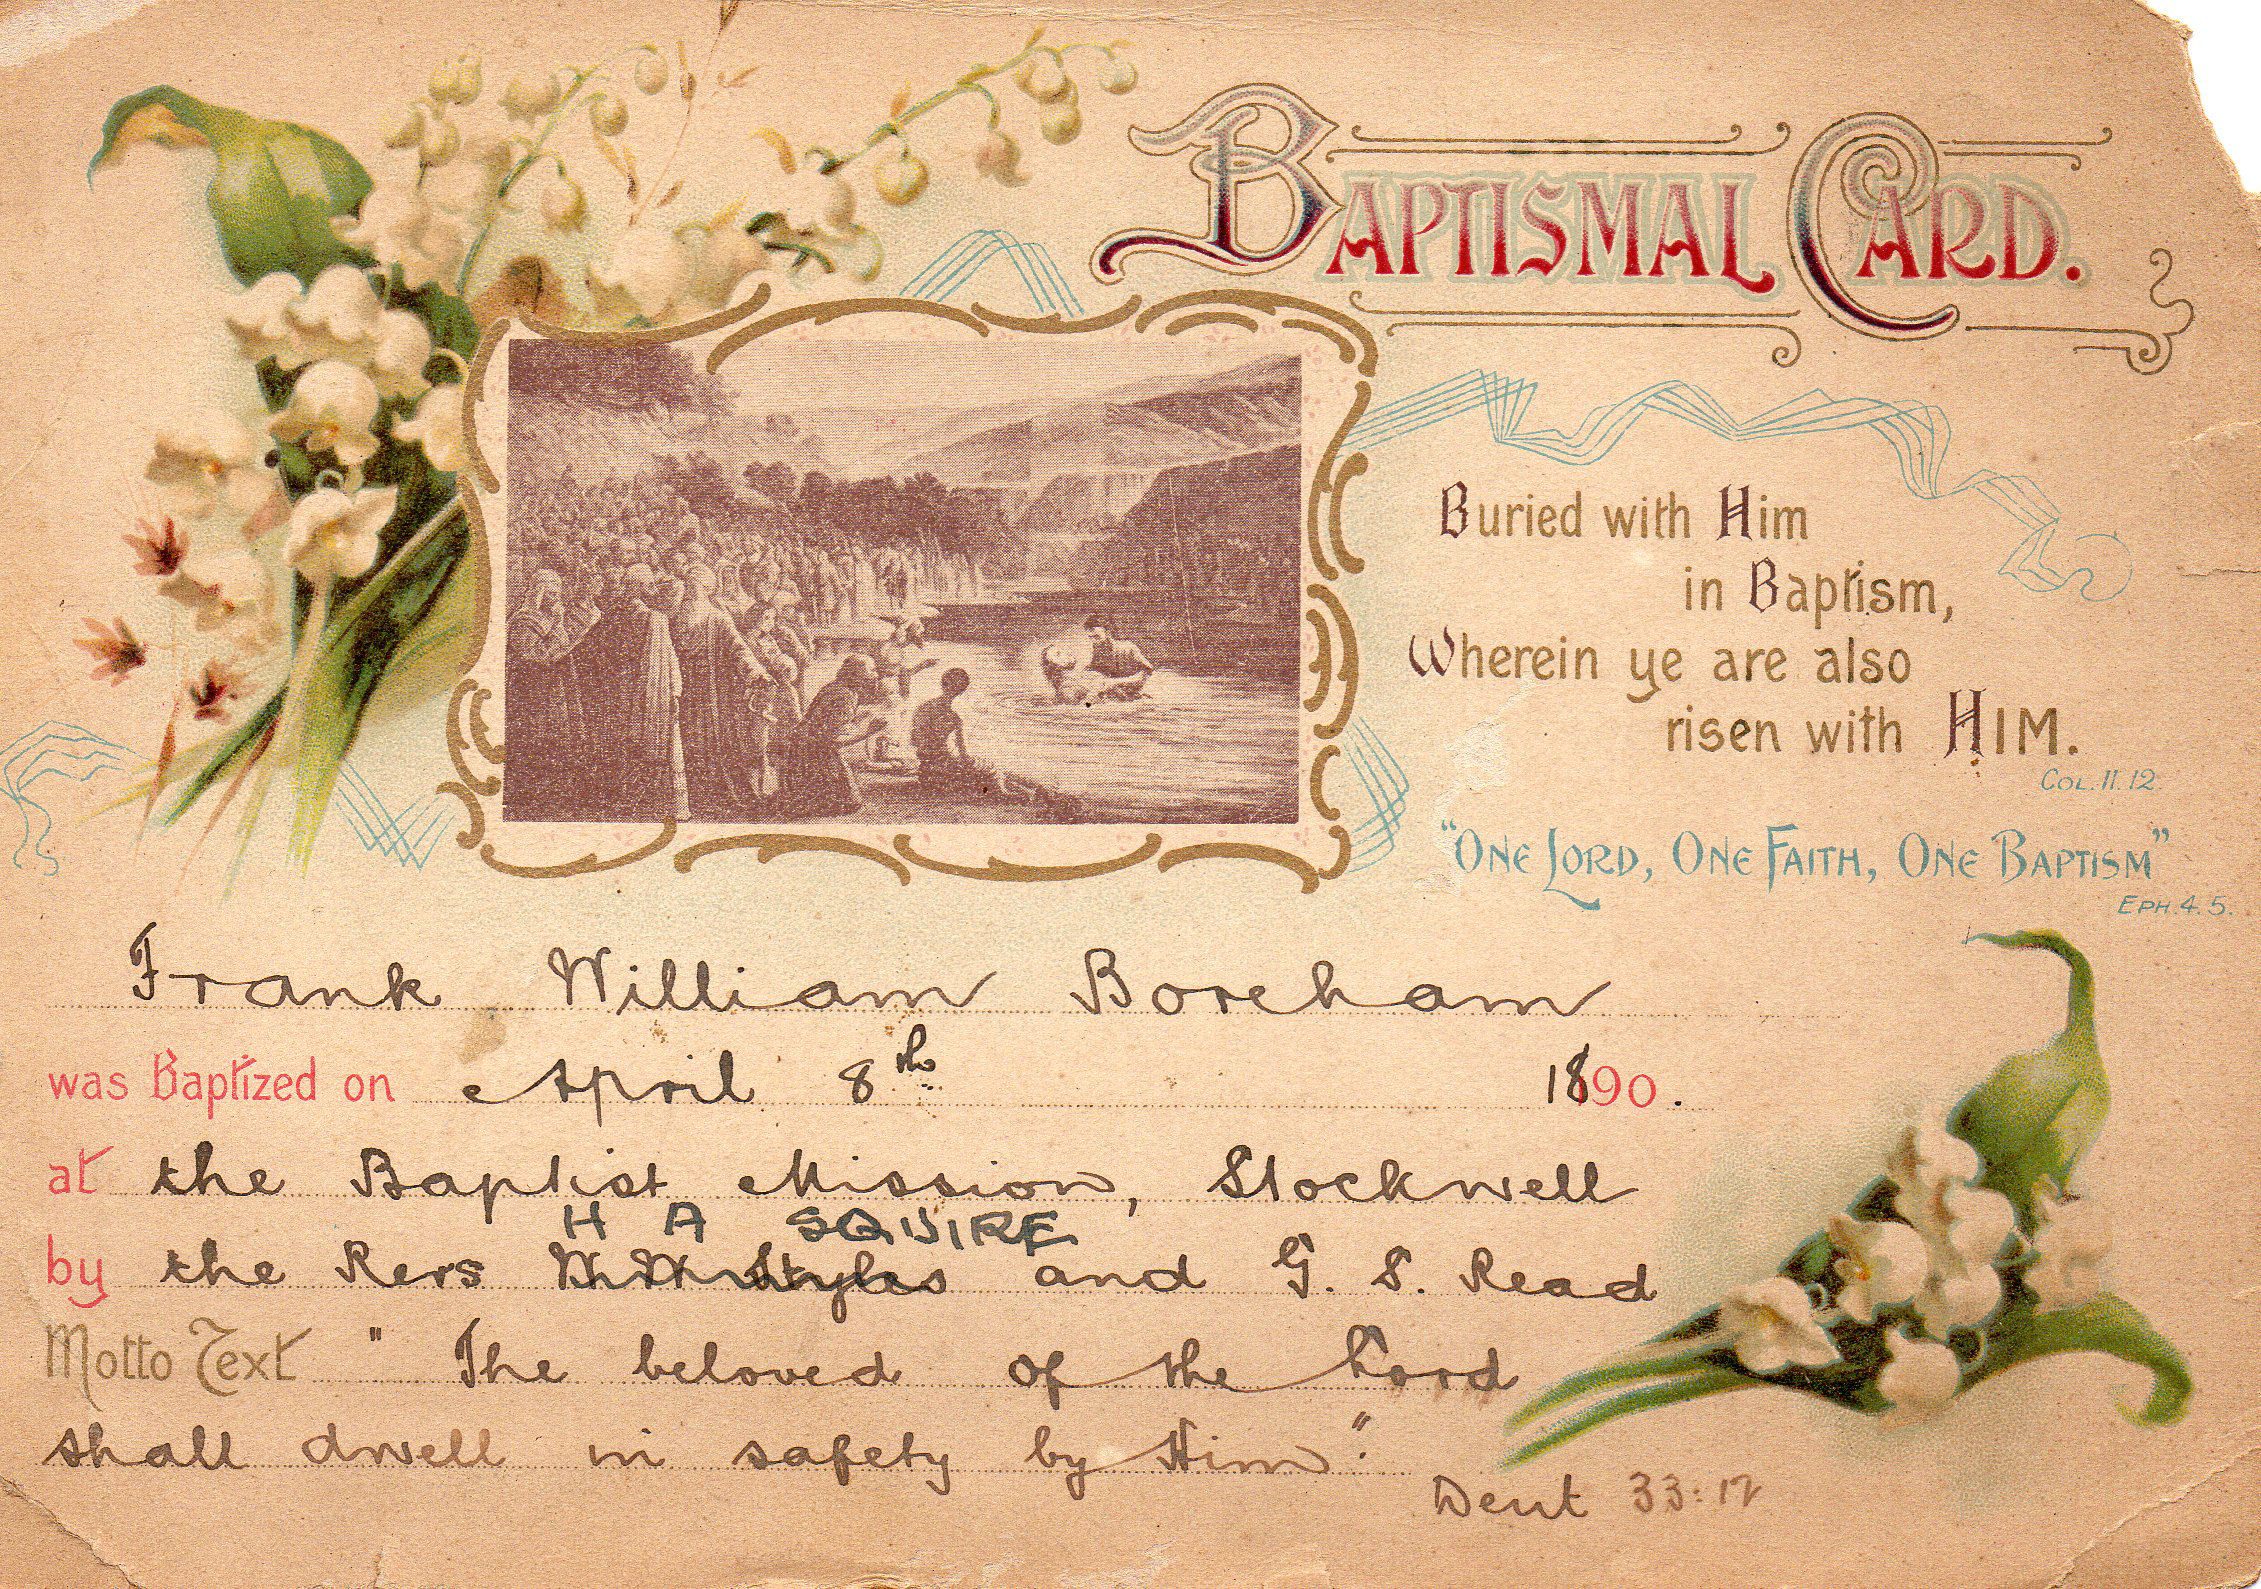 BAPTISMAL CARD.
Buried with Him
in Baptism,
Wherein ye are also
risen with HIM.
COL. 11. 12.
"ONE LORD, ONE FAITH, ONE BAPTISM"
EPH. 4. 5.
Frank William Boreham
was Baptized on April 8th 1890.
at the Baptist Mission, Stockwell
H A SQUIRE
by the Revs Styles and G. S. Read
Motto Text "The beloved of the Lord
shall dwell in safety by Him".
Deut 33:12